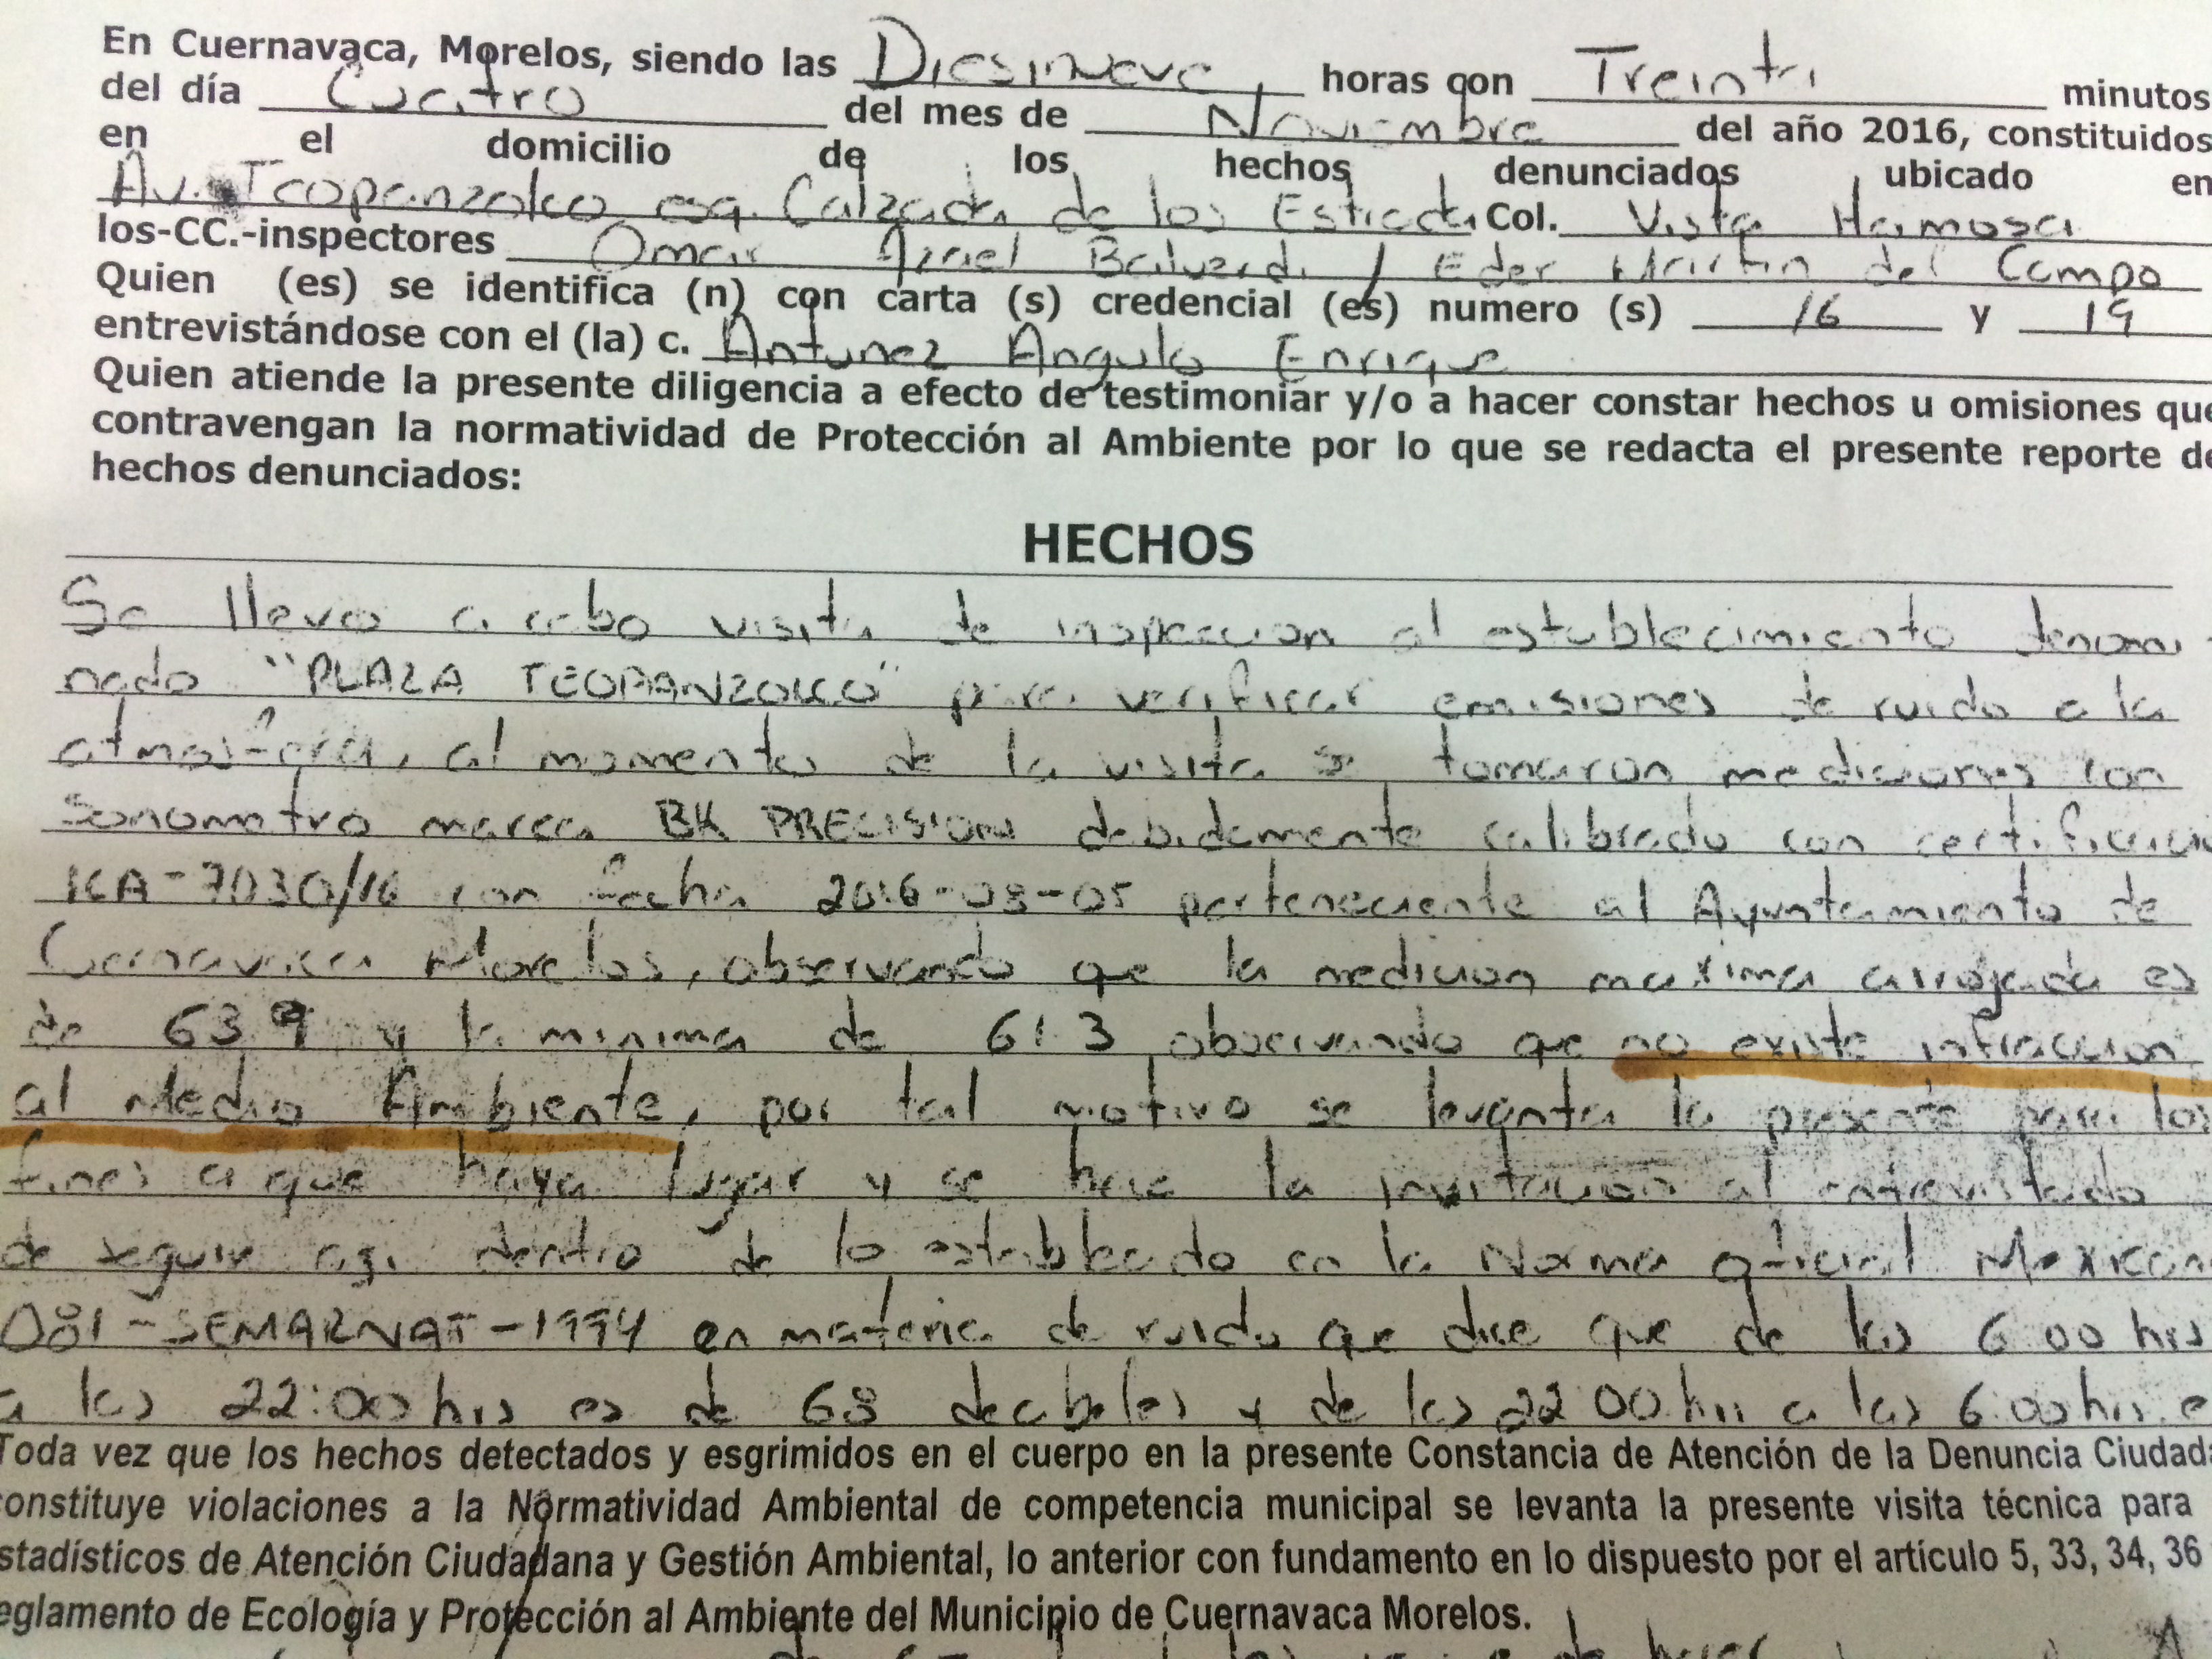 En Cuernavaca, Morelos, siendo las Diesinueve horas con Treinta minutos
del día Cuatro del mes de Noviembre del año 2016, constituidos
en el domicilio de los hechos denunciados ubicado en
Av. Teopanzolco esq. Calzada de los Estrada Col. Vista Hermosa
los-CC.-inspectores Omar Azael Balverdi / Eder Martin del Campo
Quien (es) se identifica (n) con carta (s) credencial (es) numero (s) 16 y 19
entrevistándose con el (la) c. Antunez Angulo Enrique
Quien atiende la presente diligencia a efecto de testimoniar y/o a hacer constar hechos u omisiones que
contravengan la normatividad de Protección al Ambiente por lo que se redacta el presente reporte de
hechos denunciados:
HECHOS
Se llevo a cabo visita de inspeccion al establecimiento denomi
nado "PLAZA TEOPANZOLCO" para verificar emisiones de ruido a la
atmosfera, al momento de la visita se tomaron mediciones con
Sonometro marca BK PRECISION debidamente calibrado con
ICA-7030/16 con fecha 2016-03-05 perteneciente al Ayuntamiento de
Cuernavaca Morelos, observando que la medicion maxima arrojada es
de 63.9 y la minima de 61.3 observando que no existe infraccion
al Medio Ambiente, por tal motivo se levanta la presente para los
fines a que haya lugar y se hace la invitacion al entrevistado
de seguir asi dentro de lo establecido en la Norma oficial Mexicana
081-SEMARNAT-1994 en materia de ruido que dice que de las 6:00 hrs
a las 22:00 hrs es de 68 decibeles y de las 22:00 hrs a las 6:00 hrs e
Toda vez que los hechos detectados y esgrimidos en el cuerpo en la presente Constancia de Atención de la Denuncia Ciudada
constituye violaciones a la Normatividad Ambiental de competencia municipal se levanta la presente visita técnica para
stadísticos de Atención Ciudadana y Gestión Ambiental, lo anterior con fundamento en lo dispuesto por el artículo 5, 33, 34, 36
eglamento de Ecología y Protección al Ambiente del Municipio de Cuernavaca Morelos.